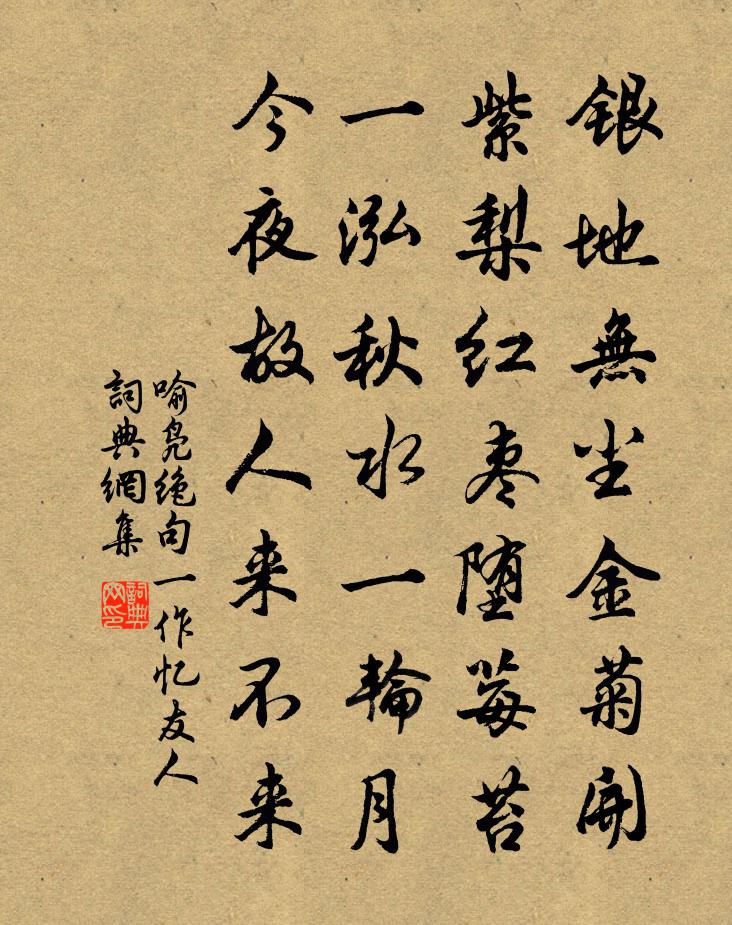 銀地無尘金菊開
紫梨红枣堕莓苔
一泓秋水一輪月
今夜故人来不来
喻凫绝句一作忆友人
詞典網集
詞典网印